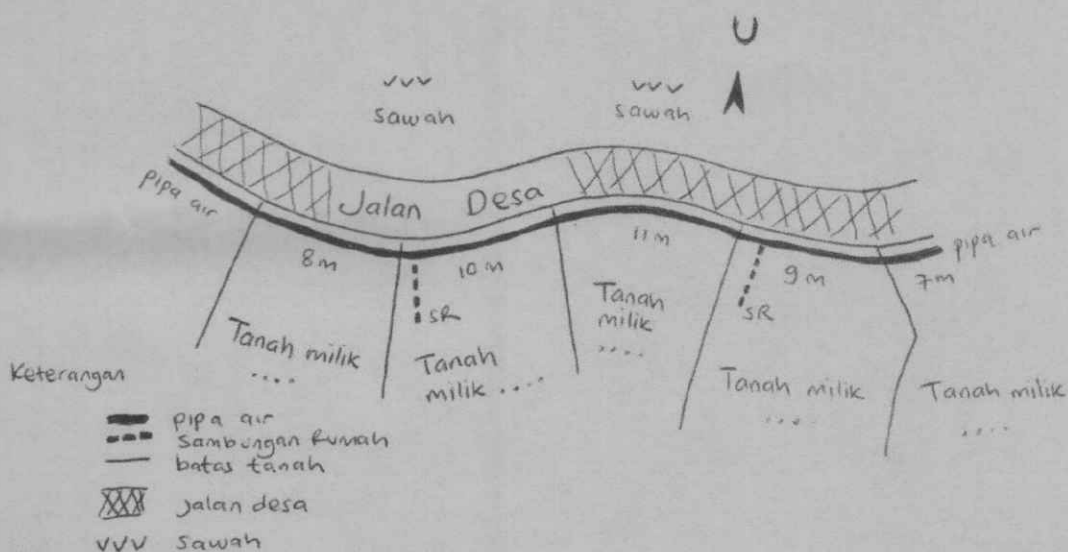 U
vvv
sawah
vvv
sawah
pipa air
Jalan Desa
pipa air
8 m
10 m
11 m
9 m
7 m
SR
SR
Tanah milik
....
Tanah
milik ....
Tanah
milik
....
Tanah milik
....
Tanah milik
....
Keterangan
pipa air
Sambungan Rumah
batas tanah
jalan desa
vvv sawah